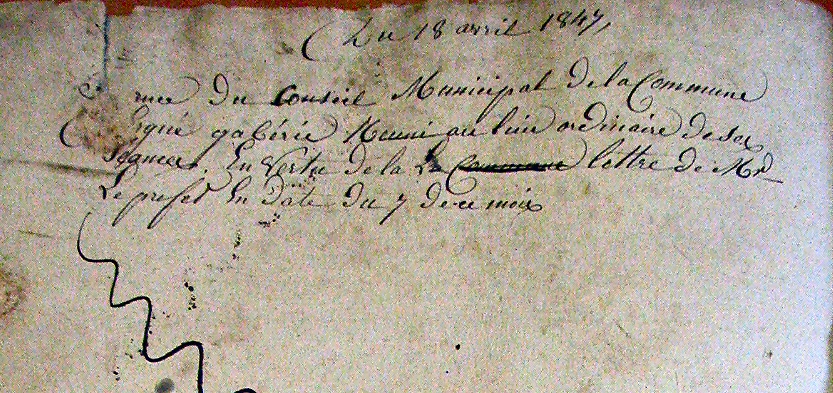 Du 18 avril 1847,
du Conseil Municipal de la Commune
gabérie Réuni au lieu ordinaire de ses
Séances, En Vertu de la lettre de Mr
Le préfet En date du 7 de ce mois